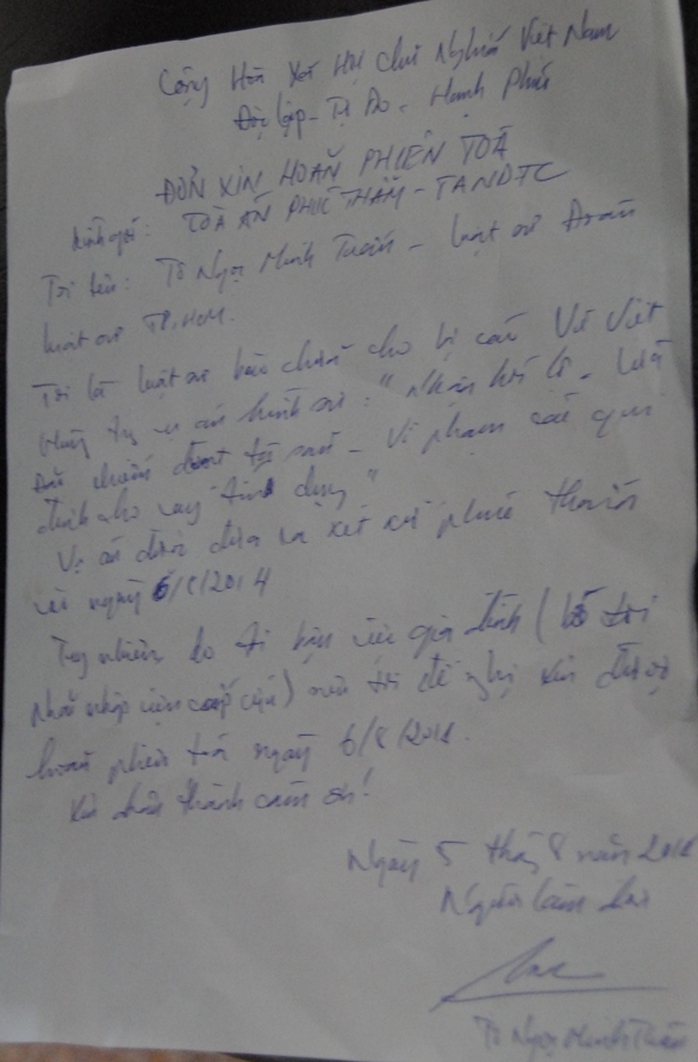 Cộng Hòa Xã Hội Chủ Nghĩa Việt Nam
Độc lập - Tự Do - Hạnh Phúc
ĐƠN XIN HOÃN PHIÊN TOÀ
Kính gửi: TOÀ ÁN PHÚC THẨM - TANDTC
Tôi tên: Tô Ngọc Minh Tuấn - luật sư Đoàn
luật sư TP.HCM.
Tôi là luật sư bào chữa cho bị cáo Võ Việt
Hùng trong vụ án hình sự: "Nhận hối lộ - Lừa
đảo chiếm đoạt tài sản - Vi phạm các qui
định cho vay tín dụng"
Vụ án được đưa ra xét xử phúc thẩm
vào ngày 6/8/2014
Tuy nhiên, do tôi bận việc gia đình (bố tôi
phải nhập viện cấp cứu) nên tôi đề nghị xin được
hoãn phiên toà ngày 6/8/2014.
Xin chân thành cảm ơn!
Ngày 5 tháng 8 năm 2014
Người làm đơn
Tô Ngọc Minh Tuấn